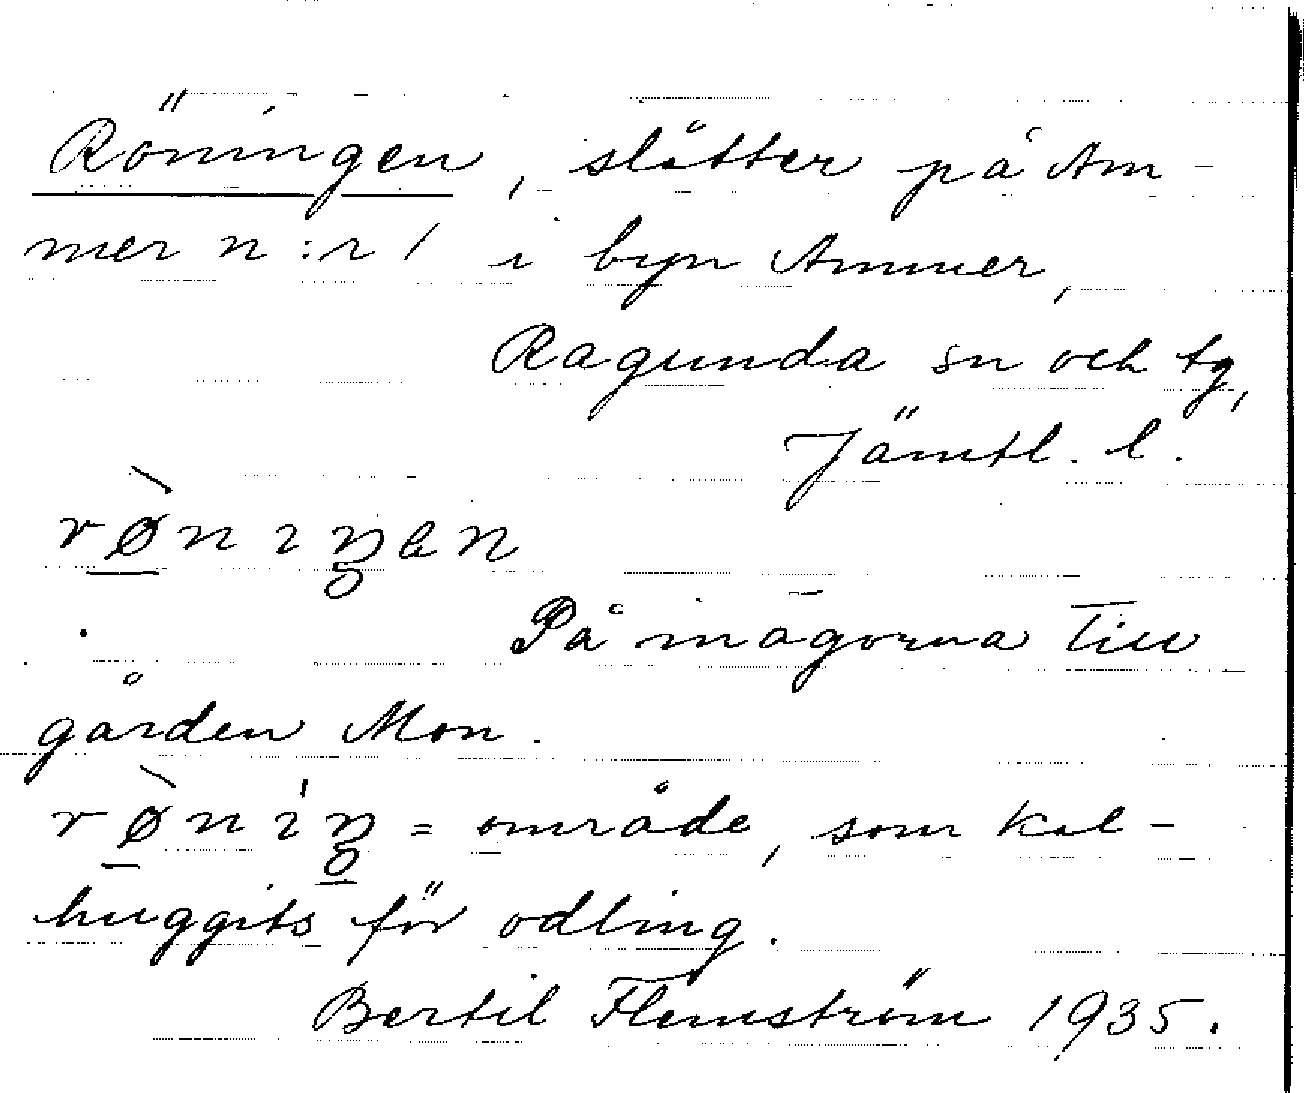 Röningen, slåtter på Am-
mer n:r 1 i byn Ammer,
Ragunda sn och tg,
Jämtl. l.
rø̀nıŋen
På inägorna till
gården Mon.
rø̀nıŋ = område, som kal-
huggits för odling.
Bertil Flemström 1935.